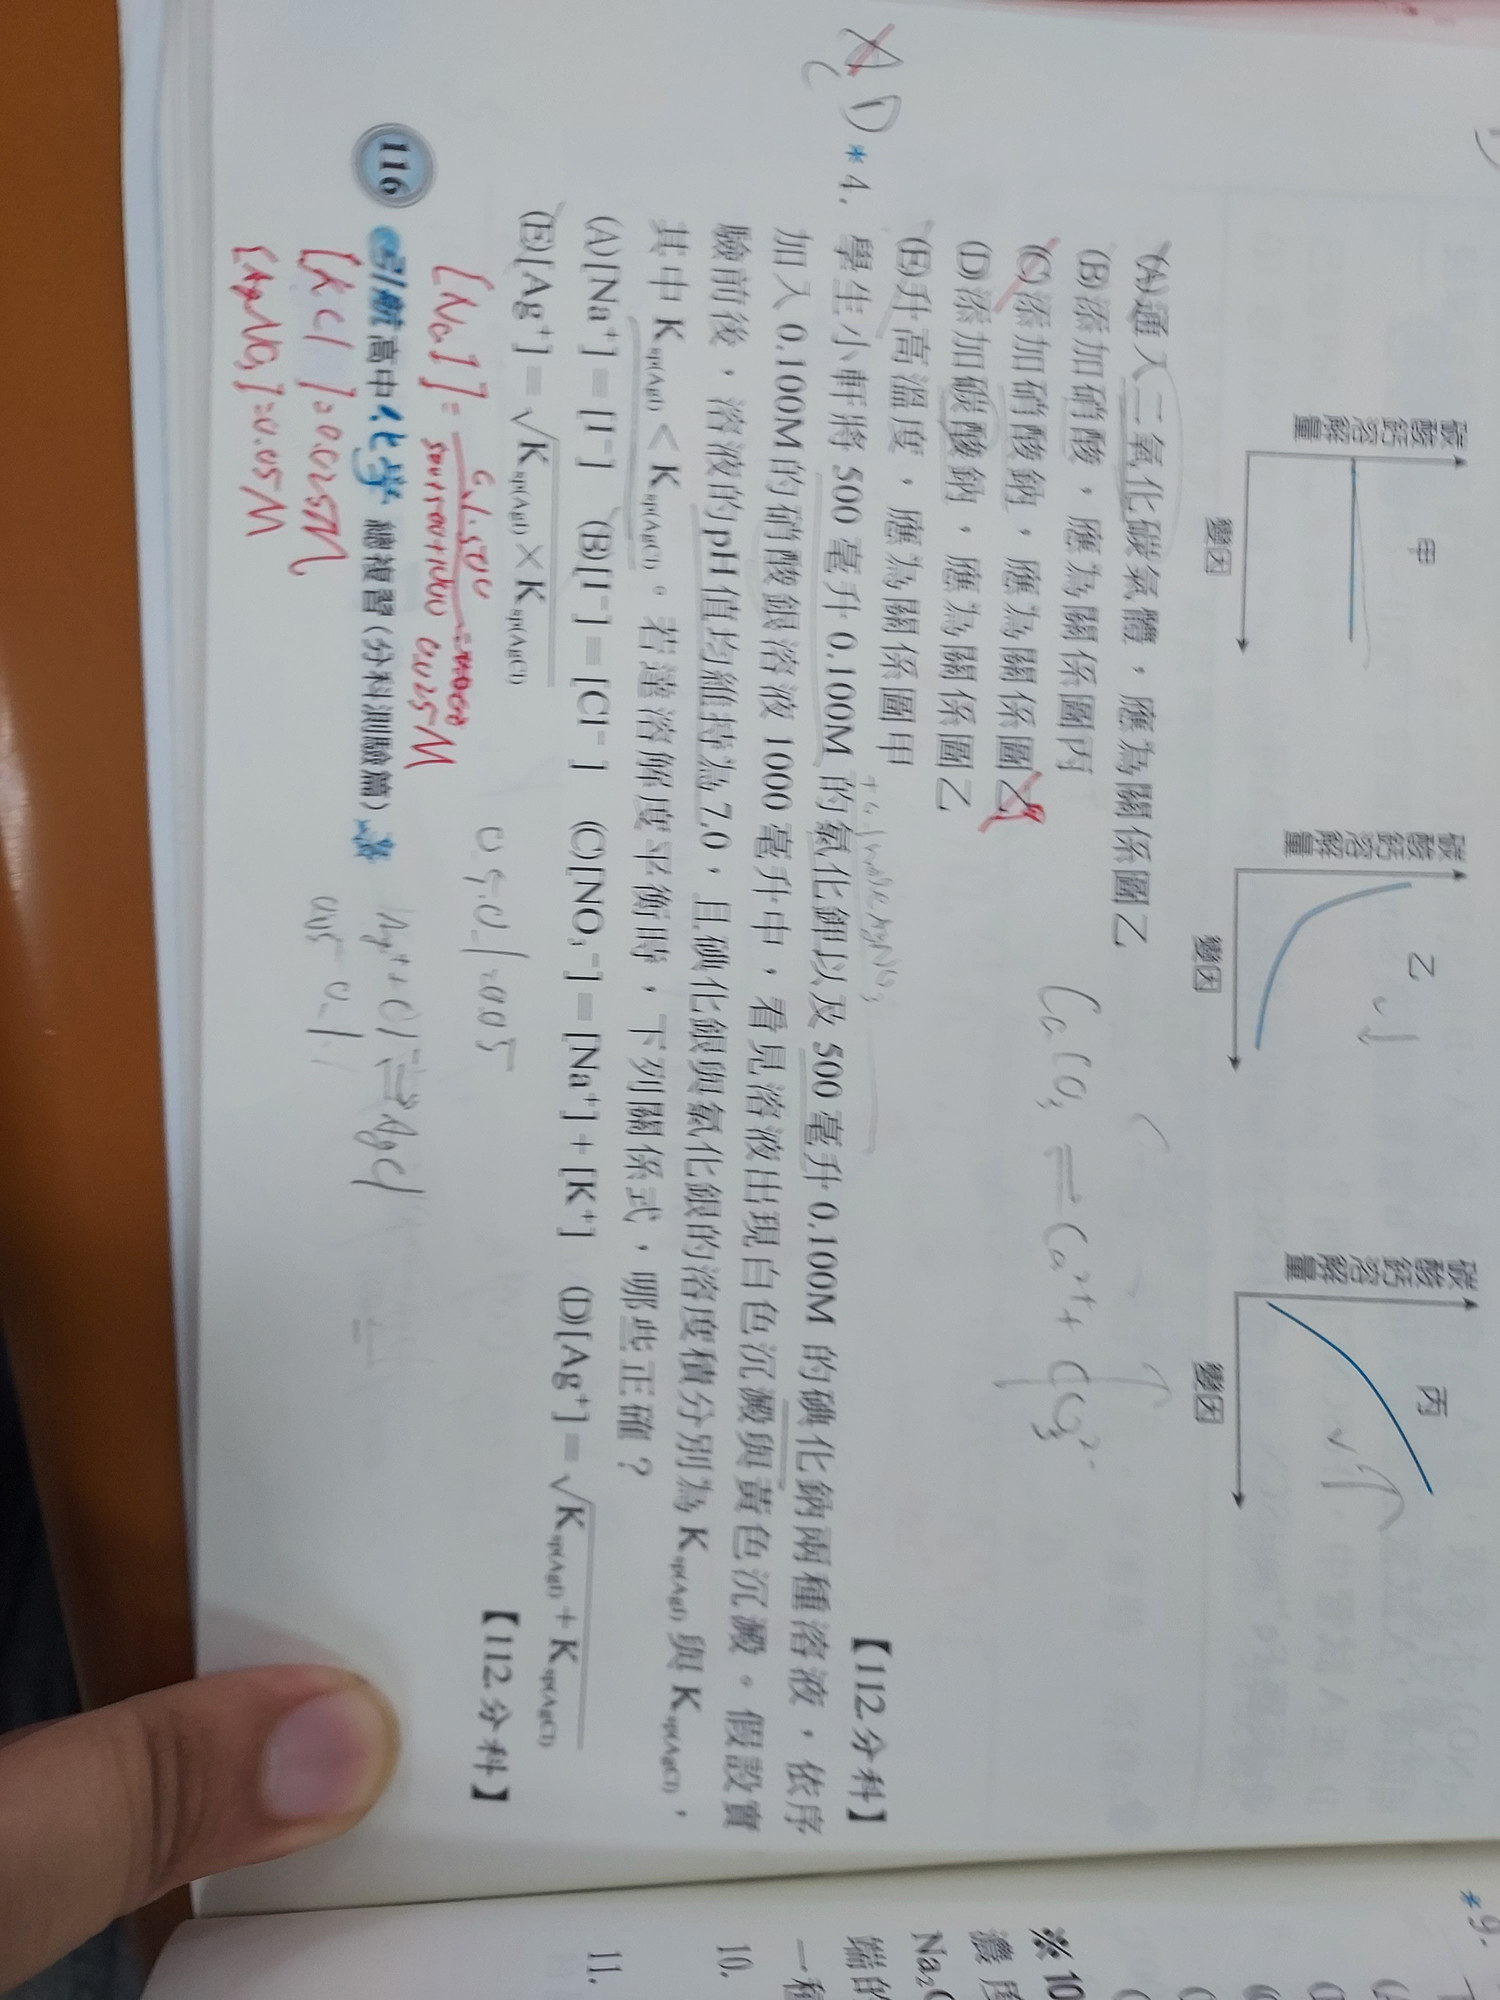 碳酸鈣溶解量
甲
變因
碳酸鈣溶解量
乙
變因
碳酸鈣溶解量
丙
變因
(A)通入二氧化碳氣體，應為關係圖乙
(B)添加硝酸，應為關係圖丙
(C)添加硝酸鈉，應為關係圖乙
(D)添加碳酸鈉，應為關係圖乙
(E)升高溫度，應為關係圖甲
【112.分科】
CaCO₃ ⇌ Ca²⁺ + CO₃²⁻
CD
*4. 學生小軒將 500 毫升 0.100M 的氯化鉀以及 500 毫升 0.100M 的碘化鈉兩種溶液，依序
加入 0.100M 的硝酸銀溶液 1000 毫升中，看見溶液出現白色沉澱與黃色沉澱。假設實
驗前後，溶液的 pH 值均維持為 7.0，且碘化銀與氯化銀的溶度積分別為 Ksp(AgI) 與 Ksp(AgCl)，
其中 Ksp(AgI) < Ksp(AgCl)。若達溶解度平衡時，下列關係式，哪些正確？
(A)[Na⁺] = [I⁻] (B)[I⁻] = [Cl⁻] (C)[NO₃⁻] = [Na⁺] + [K⁺] (D)[Ag⁺] = √Ksp(AgI) + Ksp(AgCl)
(E)[Ag⁺] = √Ksp(AgI) × Ksp(AgCl)
【112.分科】
0.5×0.1=0.05
0.025M
[KCl]=0.025M
[AgNO₃]=0.05M
Ag⁺ + Cl⁻ ⇌ AgCl
0.05 0.1
116 引航高中化學 總複習(分科測驗篇)
*9.
※10
濃度
Na₂
端的
一種
10.
11.